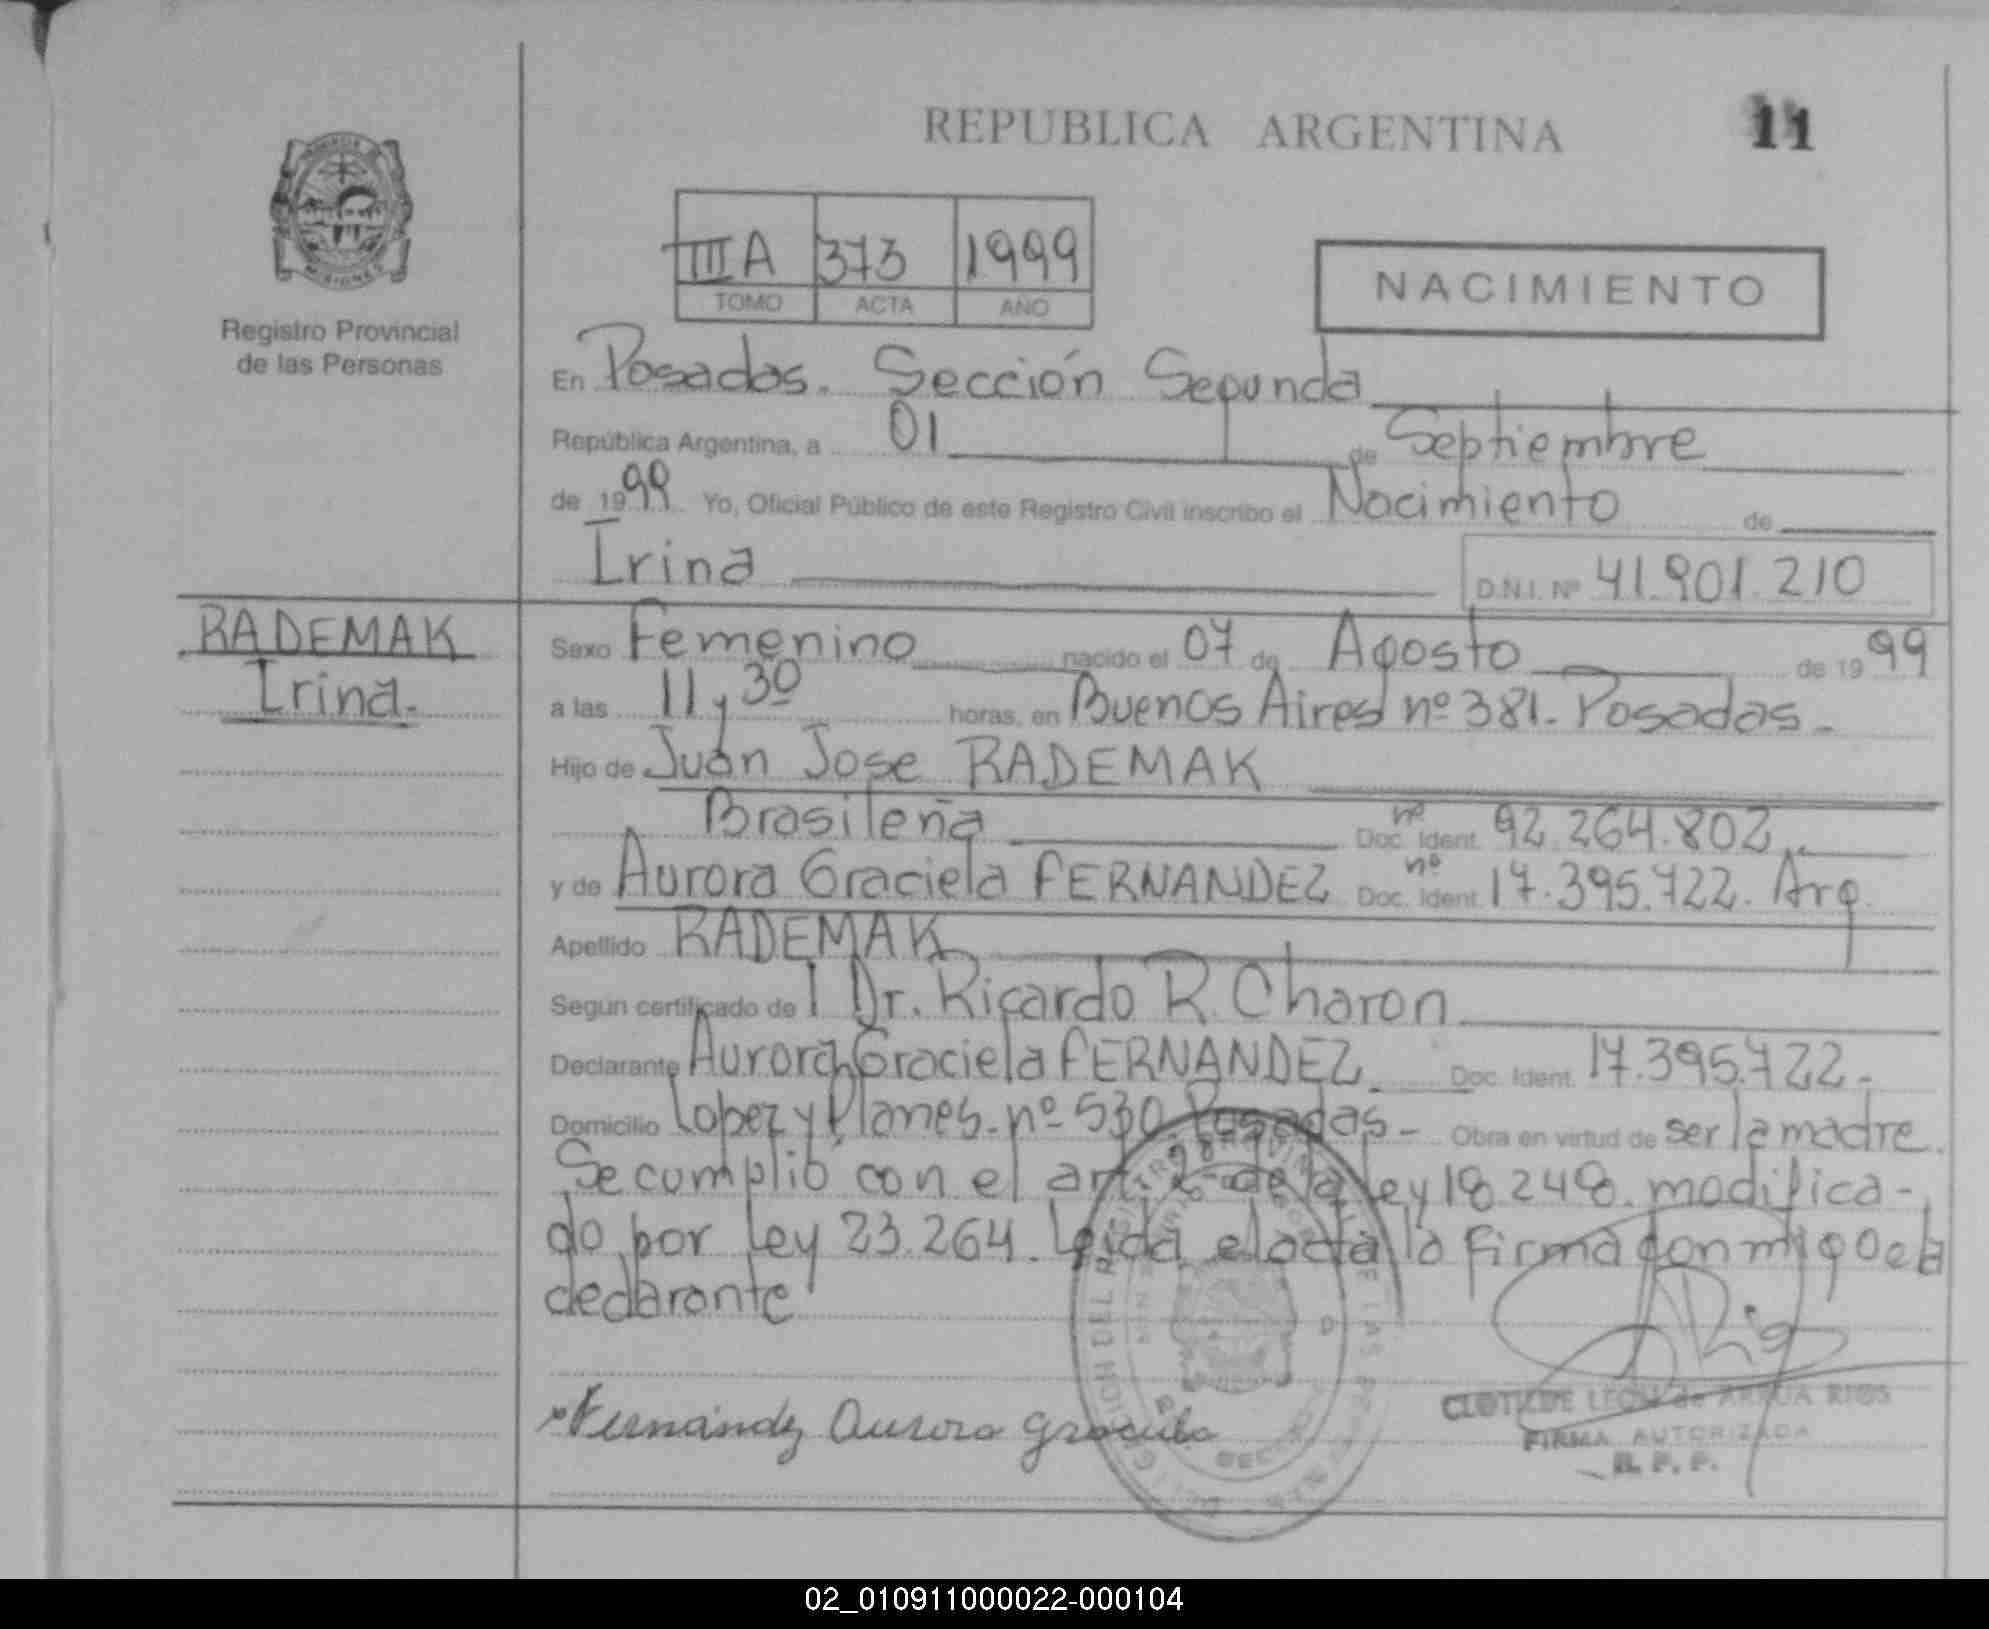 REPUBLICA ARGENTINA
11
Registro Provincial
de las Personas
III A 373 1999
TOMO ACTA AÑO
NACIMIENTO
En Posadas. Sección Segunda
República Argentina, a 01 de Septiembre
de 1999 Yo, Oficial Público de este Registro Civil inscribo el Nacimiento de
Irina D.N.I. Nº 41.901.210
RADEMAK
Irina.
Sexo Femenino nacido el 07 de Agosto de 1999
a las 11 y 30 horas, en Buenos Aires nº 381. Posadas.
Hijo de Juan Jose RADEMAK
Brasileña Doc. Ident. nº 92.264.802
y de Aurora Graciela FERNANDEZ Doc. Ident. nº 17.395.722. Arg.
Apellido RADEMAK
Según certificado de Dr. Ricardo R. Charon
Declarante Aurora Graciela FERNANDEZ. Doc. Ident. 17.395.722.
Domicilio Lopez y Planes. nº 530. Posadas. Obra en virtud de ser la madre.
Se cumplió con el art. de la ley 18.248. modifica-
do por ley 23.264. Leida el acta la firma conmigo la
declarante
Fernández Aurora Graciela
CLOTILDE LEON de ARRUA RIOS
FIRMA AUTORIZADA
R. P. P.
02_010911000022-000104